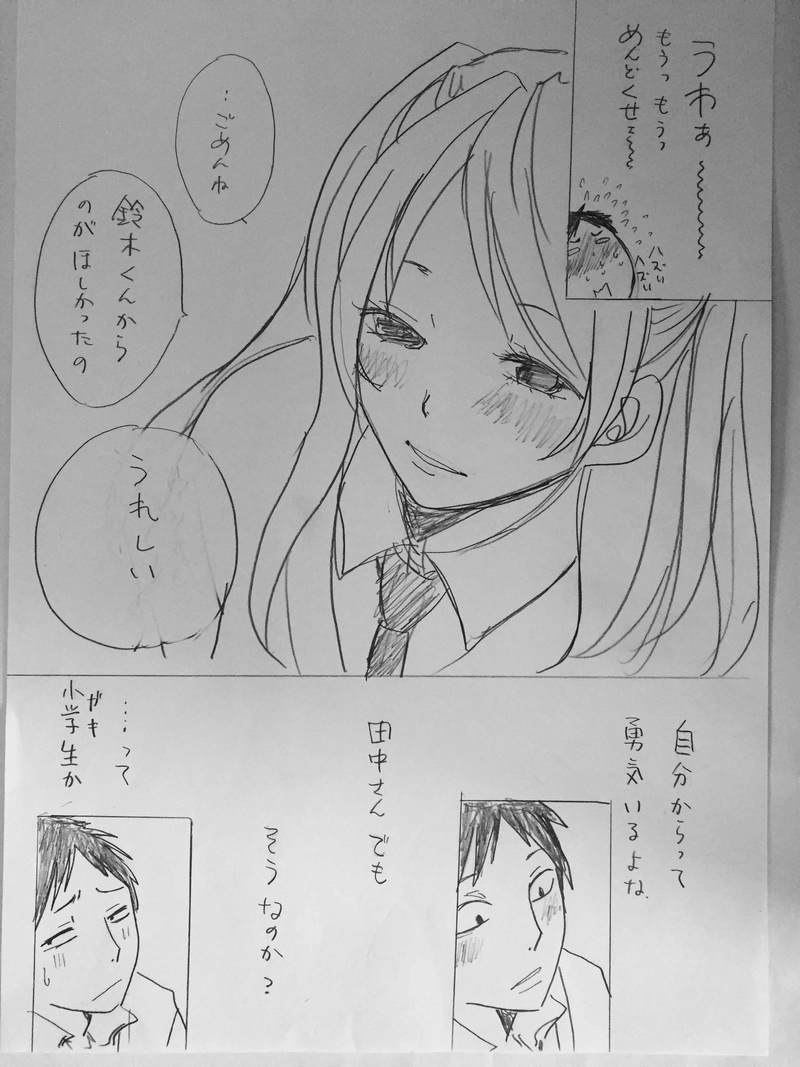 うわぁ〜〜〜〜
もうっもうっ
めんどくせェ〜〜
ハズい
ハズい
…ごめんね
鈴木くんから
のがほしかったの
うれしい
自分からって
勇気いるよな
田中さんでも
そうなのか?
…って
ガキ
小学生か